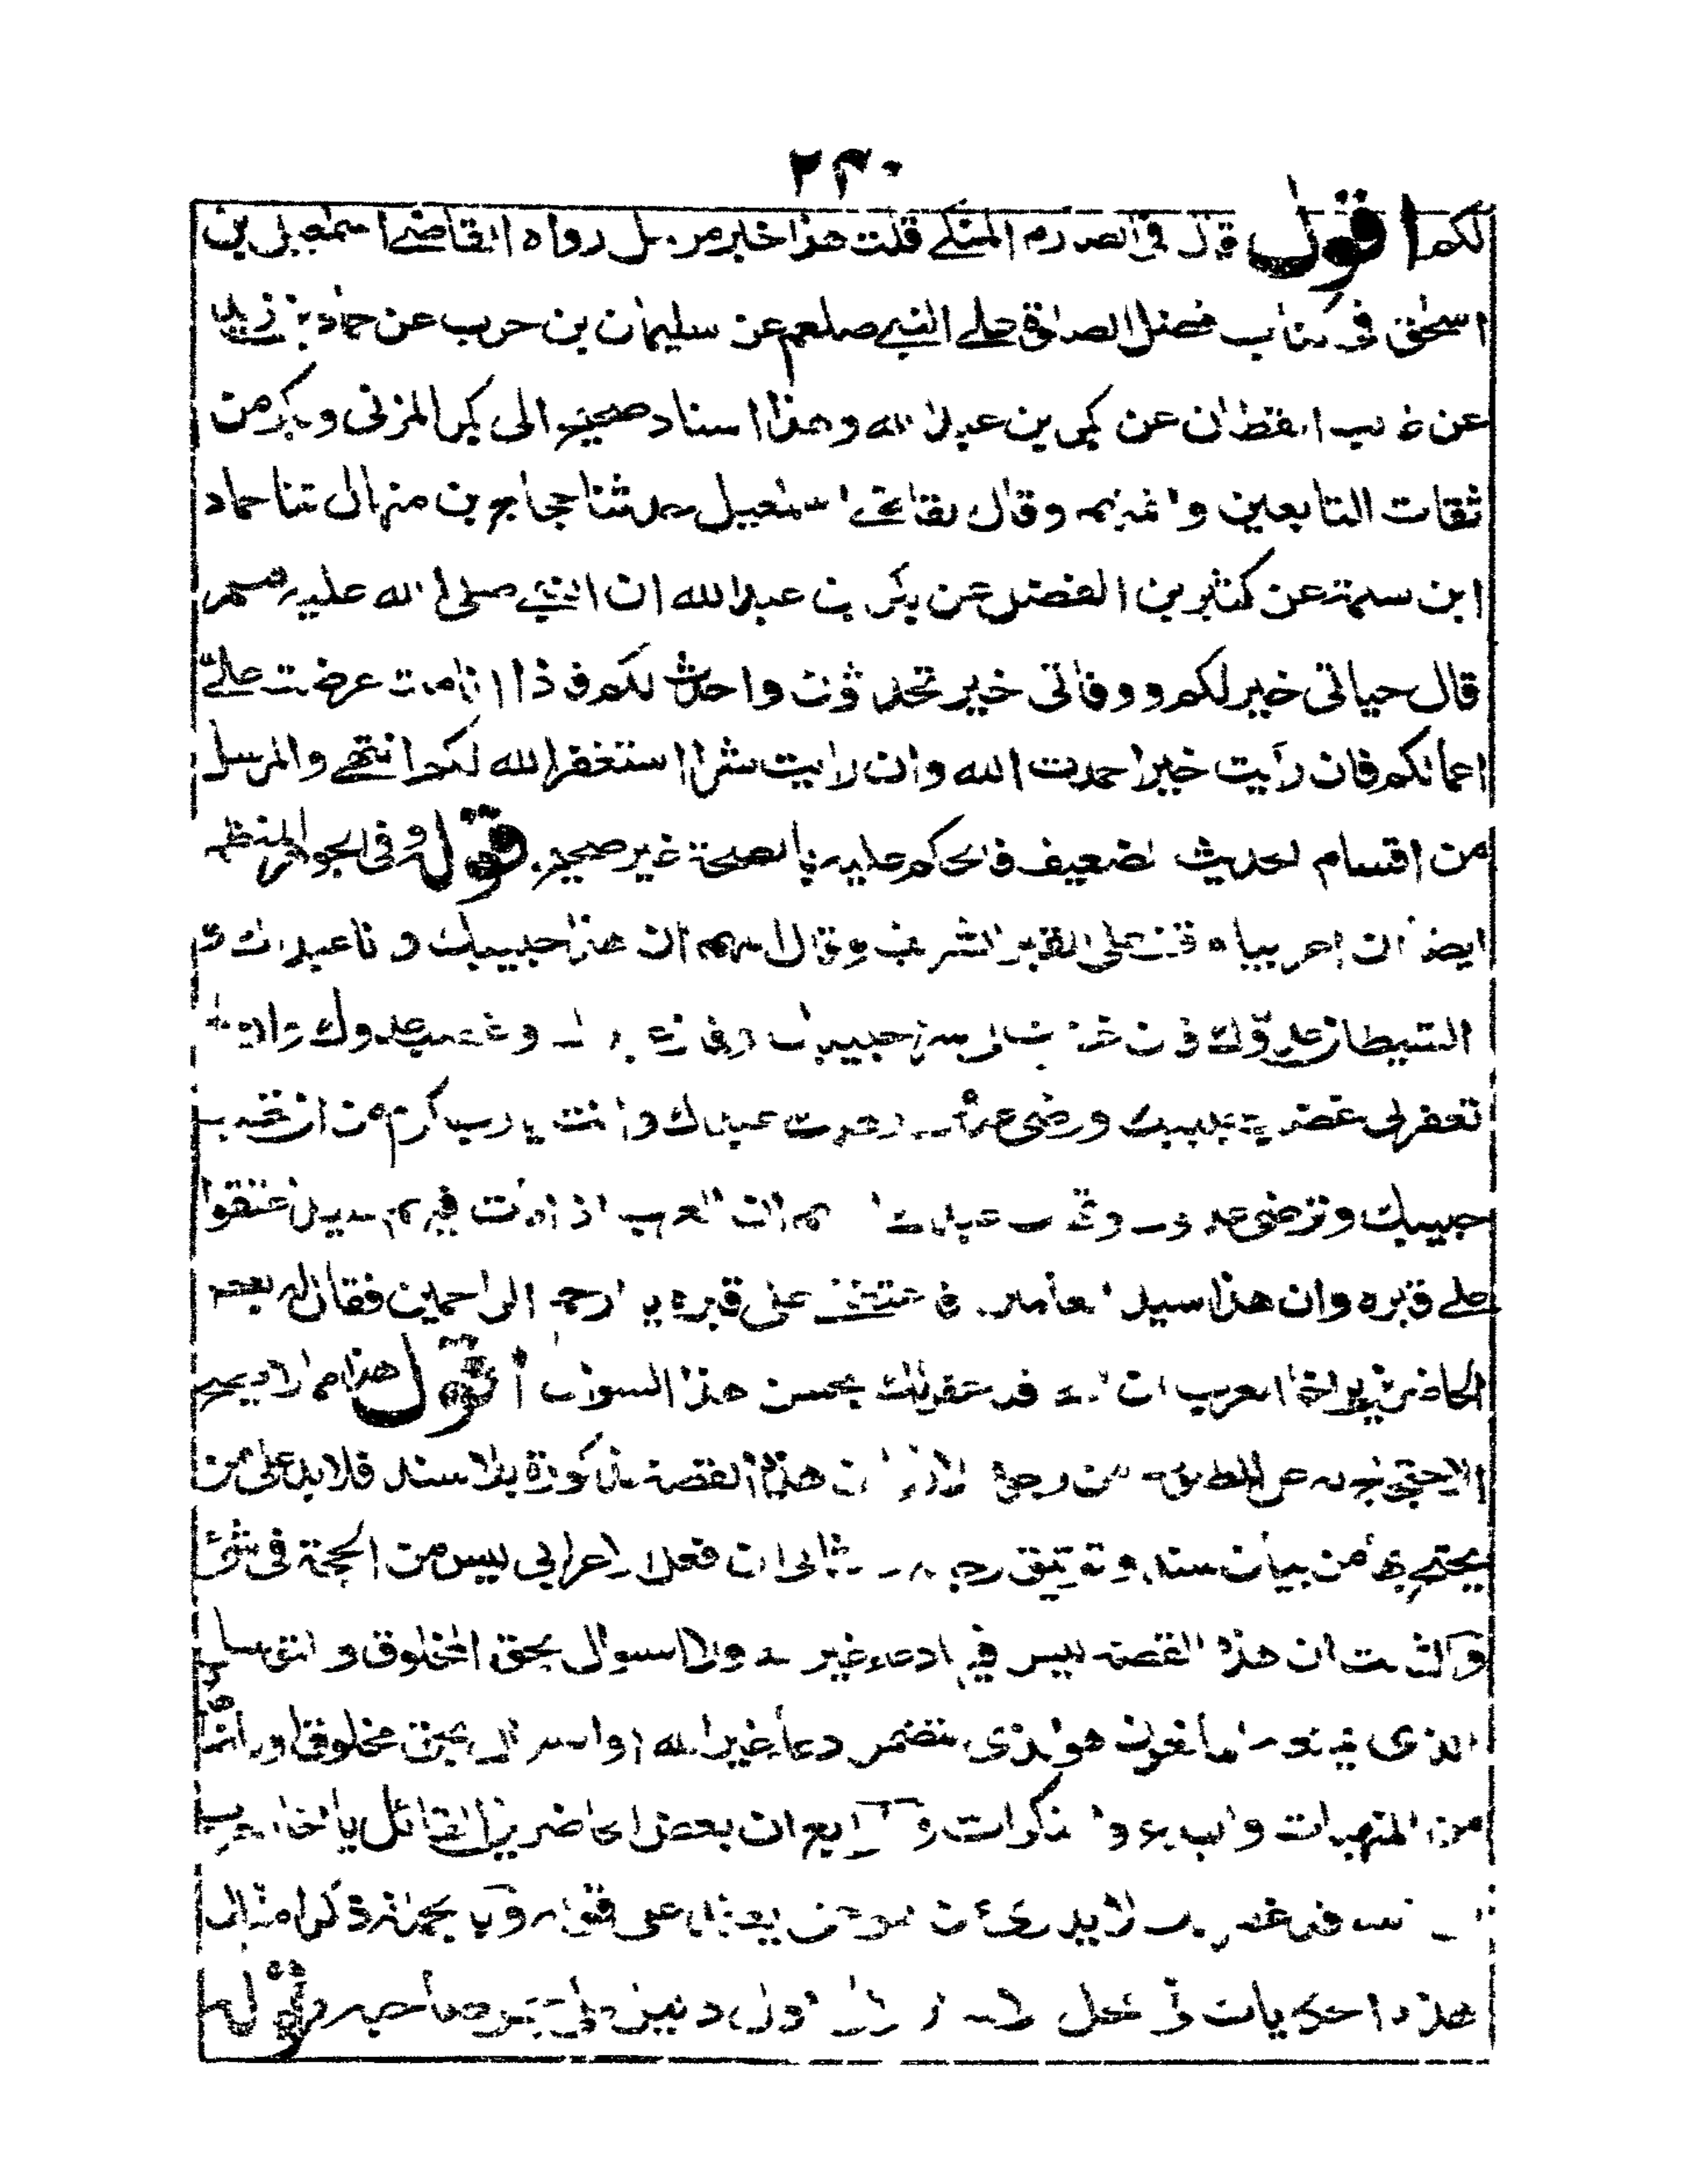 ٢٤٠
لكم اقول قال فى الصارم المنكے قلت هذا خبر مرسل رواه القاضے اسمعيل بن
اسحٰق فى كتاب فضل الصلوٰة علے النبے صلعم عن سليمان بن حرب عن حماد بن زيد
عن غالب القطان عن بكر بن عبد الله وهذا اسناد صحيح الى بكر المزنى وبكر من
ثقات التابعين وائمتهم وقال القاضے اسمٰعيل حدثنا حجاج بن منهال ثنا حماد
ابن سلمة عن كثير بن الفضل عن بكر بن عبد الله ان النبے صلى الله عليه وسلم
قال حياتى خير لكم ووفاتى خير تحدثون واحدث لكم فاذا انا مت عرضت علےّ
اعمالكم فان رأيت خيرا حمدت الله وان رايت شرا استغفر الله لكم انتهے والمرسل
من اقسام الحديث الضعيف فالحكم عليه بالصحة غير صحيح. قوله وفى الجوهر المنظم
ايضا ان اعرابيا وقف على القبر الشريف وقال اللهم ان هذا حبيبك وانا عبدك و
الشيطان عدوك فان غفرت لى سر حبيبك وفاز عبدك وغضب عدوك وان لم
تغفر لى غضب حبيبك ورضى عدوك وهلك عبدك وانت يا رب اكرم من ان تغضب
حبيبك وترضى عدوك وتهلك عبدك اللهم ان العرب اذا مات فيهم سيد اعتقوا
علے قبره وان هذا سيد العالمين فاعتقنى على قبره يا ارحم الراحمين فقال له بعض
الحاضرين يا اخا العرب ان الله قد غفر لك بحسن هذا السوال اقول هذا مما لا يصح
الاحتجاج به على المطلوب من وجوه الاول ان هذه القصة مذكورة بلا سند فلا بد على من
يحتج بها من بيان سنده وتوثيق رجاله والثانى ان فعل الاعرابى ليس من الحجة فى شئ
والثالث ان هذه القصة ليس فيها دعاء غير الله ولا السوال بحق المخلوق والتوسل
الذى يمنعه المانعون هو الذى يتضمن دعاء غير الله او السوال بحق مخلوق او
من المنهيات والبدع والمنكرات والرابع ان بعض الحاضرين القائل يا اخا العرب
ان الله قد غفر لك لا يدرى من هو حتى يعتمد على قوله وبالجملة ذكر امثال
هذه الحكايات فى
قوله